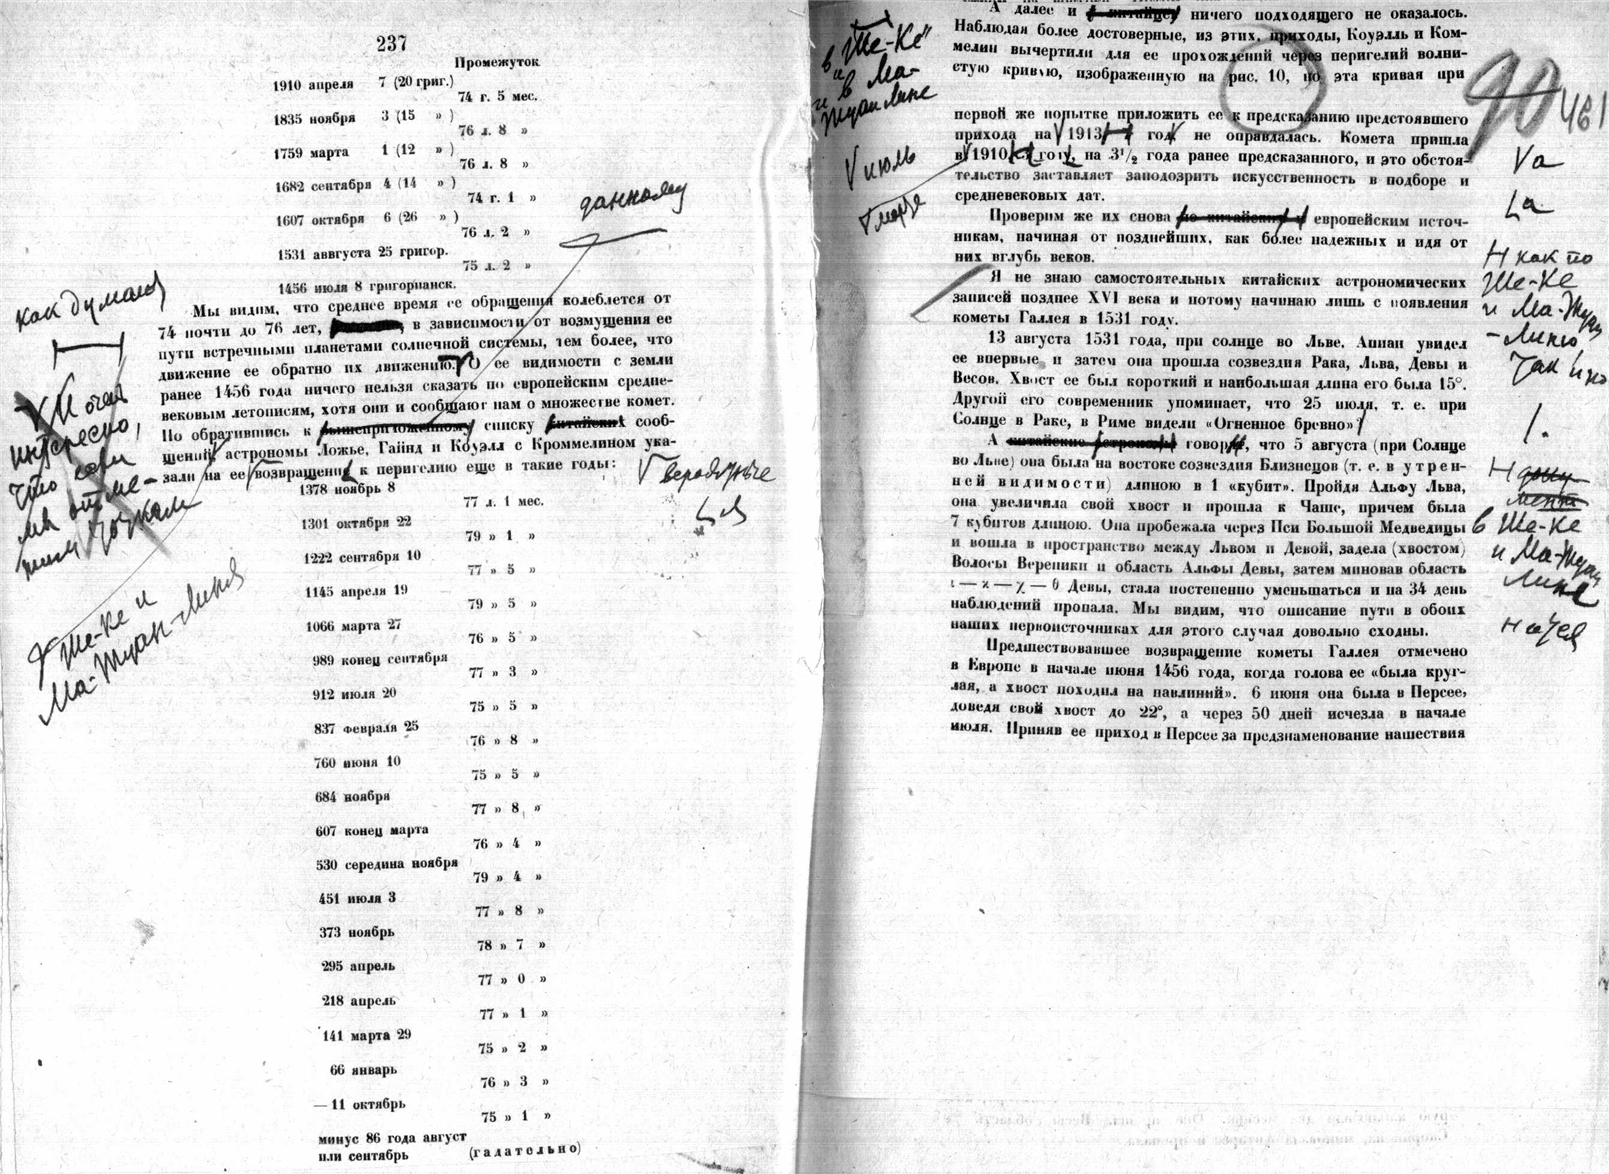 237
Промежуток
1910 апреля 7 (20 григ.)
74 г. 5 мес.
1835 ноября 3 (15 » )
76 л. 8 »
1759 марта 1 (12 » )
76 л. 8 »
1682 сентября 4 (14 » )
74 г. 1 »
1607 октября 6 (26 » )
76 л. 2 »
1531 аввгуста 25 григор.
75 л. 2 »
1456 июля 8 григорианск.
данному
как думают
Мы видим, что среднее время ее обращения колеблется от
74 почти до 76 лет, в зависимости от возмущения ее
пути встречными планетами солнечной системы, тем более, что
движение ее обратно их движению. О ее видимости с земли
ранее 1456 года ничего нельзя сказать по европейским средне-
вековым летописям, хотя они и сообщают нам о множестве комет.
Но обратившись к вышеприложенному списку китайских сооб-
щений, астрономы Ложье, Гайнд и Коуэлл с Кроммелином ука-
зали на ее возвращения к перигелию еще в такие годы:
И очень
интересно,
что сами
мы отме-
тим точками
Ше-Ке и
Ма-Туан-Линя
вероятные
1378 ноябрь 8
77 л. 1 мес.
1301 октября 22
79 » 1 »
1222 сентября 10
77 » 5 »
1145 апреля 19
79 » 5 »
1066 марта 27
76 » 5 »
989 конец сентября
77 » 3 »
912 июля 20
75 » 5 »
837 февраля 25
76 » 8 »
760 июня 10
75 » 5 »
684 ноября
77 » 8 »
607 конец марта
76 » 4 »
530 середина ноября
79 » 4 »
451 июля 3
77 » 8 »
373 ноябрь
78 » 7 »
295 апрель
77 » 0 »
218 апрель
77 » 1 »
141 марта 29
75 » 2 »
66 январь
76 » 3 »
— 11 октябрь
75 » 1 »
минус 86 года август
или сентябрь (гадательно)
А далее и у китайцев ничего подходящего не оказалось.
Наблюдая более достоверные, из этих, приходы, Коуэлль и Ком-
мелин вычертили для ее прохождений через перигелий волни-
стую кривую, изображенную на рис. 10, но эта кривая при
первой же попытке приложить ее к предсказанию предстоявшего
прихода на 1913 год не оправдалась. Комета пришла
в 1910 году, на 3½ года ранее предсказанного, и это обстоя-
тельство заставляет заподозрить искусственность в подборе и
средневековых дат.
Проверим же их снова по китайским и европейским источ-
никам, начиная от позднейших, как более надежных и идя от
них вглубь веков.
Я не знаю самостоятельных китайских астрономических
записей позднее XVI века и потому начинаю лишь с появления
кометы Галлея в 1531 году.
13 августа 1531 года, при солнце во Льве, Апиан увидел
ее впервые и затем она прошла созвездия Рака, Льва, Девы и
Весов. Хвост ее был короткий и наибольшая длина его была 15°.
Другой его современник упоминает, что 25 июля, т. е. при
Солнце в Раке, в Риме видели «Огненное бревно»
А китайские астрономы говорят, что 5 августа (при Солнце
во Льве) она была на востоке созвездия Близнецов (т. е. в утрен-
ней видимости) длиною в 1 «кубит». Пройдя Альфу Льва,
она увеличила свой хвост и прошла к Чаше, причем была
7 кубитов длиною. Она пробежала через Пси Большой Медведицы
и вошла в пространство между Львом и Девой, задела (хвостом)
Волосы Вереники и область Альфы Девы, затем миновав область
ι — κ — χ — θ Девы, стала постепенно уменьшаться и на 34 день
наблюдений пропала. Мы видим, что описание пути в обоих
наших первоисточниках для этого случая довольно сходны.
Предшествовавшее возвращение кометы Галлея отмечено
в Европе в начале июня 1456 года, когда голова ее «была круг-
лая, а хвост походил на павлиний». 6 июня она была в Персее,
доведя свой хвост до 22°, а через 50 дней исчезла в начале
июля. Приняв ее приход в Персее за предзнаменование нашествия
в "Ше-Ке"
и в Ма-
Туан Лине
июль
марте
90
461
а
а
как по
Ше-Ке
и Ма-Туан
-Линю
в Ше-Ке
и Ма-Туан
Лине